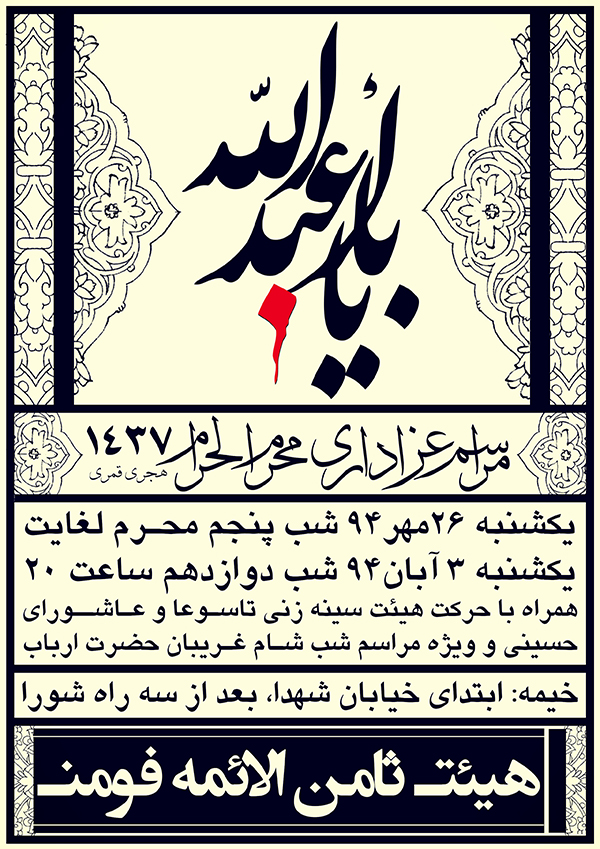 یا أبا عبدالله
مراسم عزاداری محرم الحرام ۱۴۳۷
هجری قمری
یکشنبه ۲۶مهر۹۴ شب پنجم محرم لغایت
یکشنبه ۳ آبان۹۴ شب دوازدهم ساعت ۲۰
همراه با حرکت هیئت سینه زنی تاسوعا و عاشورای
حسینی و ویژه مراسم شب شام غریبان حضرت ارباب
خیمه: ابتدای خیابان شهدا، بعد از سه راه شورا
هیئت ثامن الائمه فومن